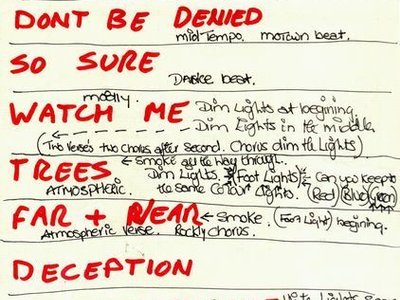 DONT BE DENIED
mid Tempo. motown beat.
SO SURE
Dance beat.
WATCH ME
moelly. Dim Lights at begining
Dim Lights in the middle
(Two Verses two Chorus after second. Chorus dim the Lights)
TREES ← Smoke all the way through.
Dim Lights. (Foot Lights) Can you keep to
ATMOSPHERIC. the same Colour Lights. (Red) (Blue) (Green)
FAR + NEAR ← Smoke. Light) begining.
Atmospheric Verse. Rockly Chorus.
DECEPTION